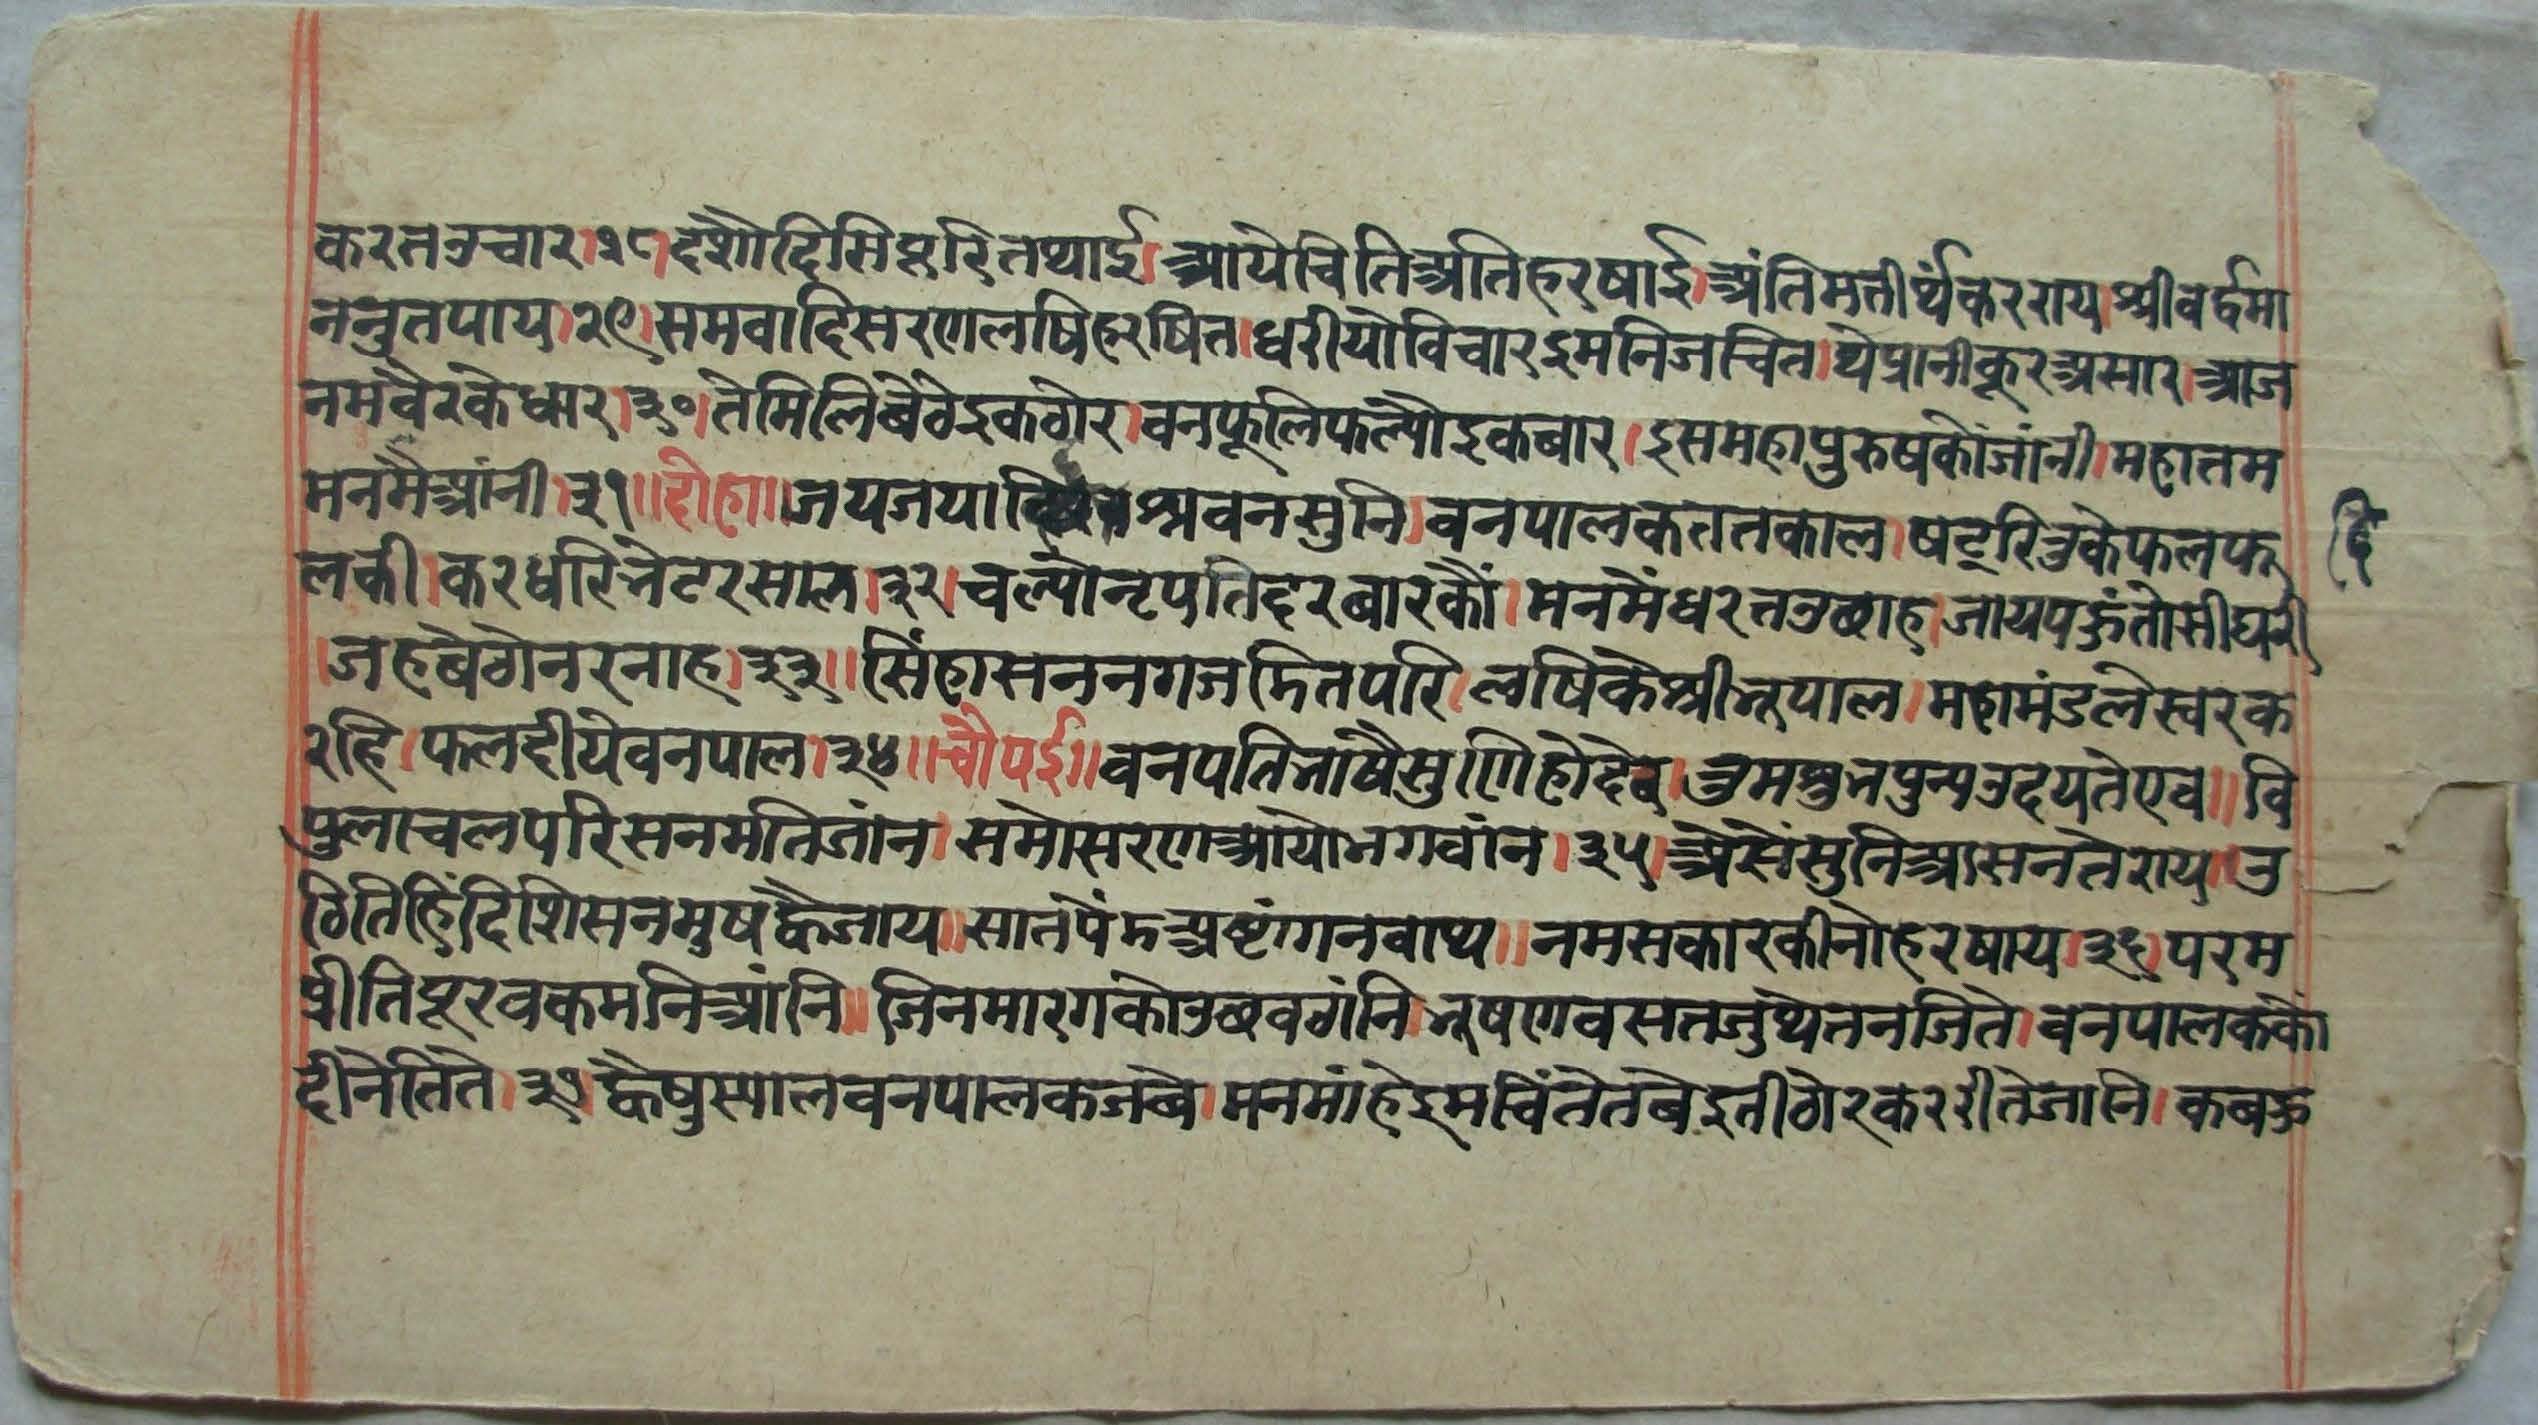 करतउचार।२८। दशौदिसिपूरितथाई। आयेचितिअतिहरषाई। अंतिमतीर्थंकरराय। श्रीवर्द्धमा
ननुतपाय।२९। समवादिसरणलषिहरषित। धरीयोविचारइमनिजचित। येप्रानीकूरअसार। आज
नमवैरकेधार।३०। तेमिलिबैठेइकठोर। वनफूलिफल्यौइकबार। इसमहापुरुषकोंजांनी। महातम
मनमैंआंनी।३१॥ दोहा॥ जयजया श्रवनसुनि। वनपालकततकाल। षट्रितुकेफलफू
द्दि
लकी। करधरिभेटरसाल।३२। चल्यौनृपतिदरबारकौं। मनमैंधरतउछाह। जायपऊंतोसीघरी
।जहबैठोनरनाह।३३॥ सिंहासननगजडितपरि। लषिकैश्रीभूपाल। महामंडलेस्वरक
रहि। फलदीयेवनपाल।३४॥ चौपई॥ वनपतिभाषैसुणिहोदेव। तुमशुभपुन्यउदयतेएव॥ वि
पुलाचलपरिसनमतिजांन। समोसरणआयोभगवांन।३५। अैसेंसुनिआसनतेराय। उ
ठितिहिंदिशिसनमुषह्वैजाय॥ सातपैंडअष्टांगनवाय॥ नमसकारकीनोहरषाय।३६। परम
प्रीतिपूरवकमनिआंनि॥ जिनमारगकोउछवठांनि। भूषणवसतजुथेतनजिते। वनपालककों
दीनेतिते।३७। ह्वैषुस्यालवनपालकजबै। मनमांहेइमचिंतेतबेइतीठोरकररीतेजानि। कबऊ